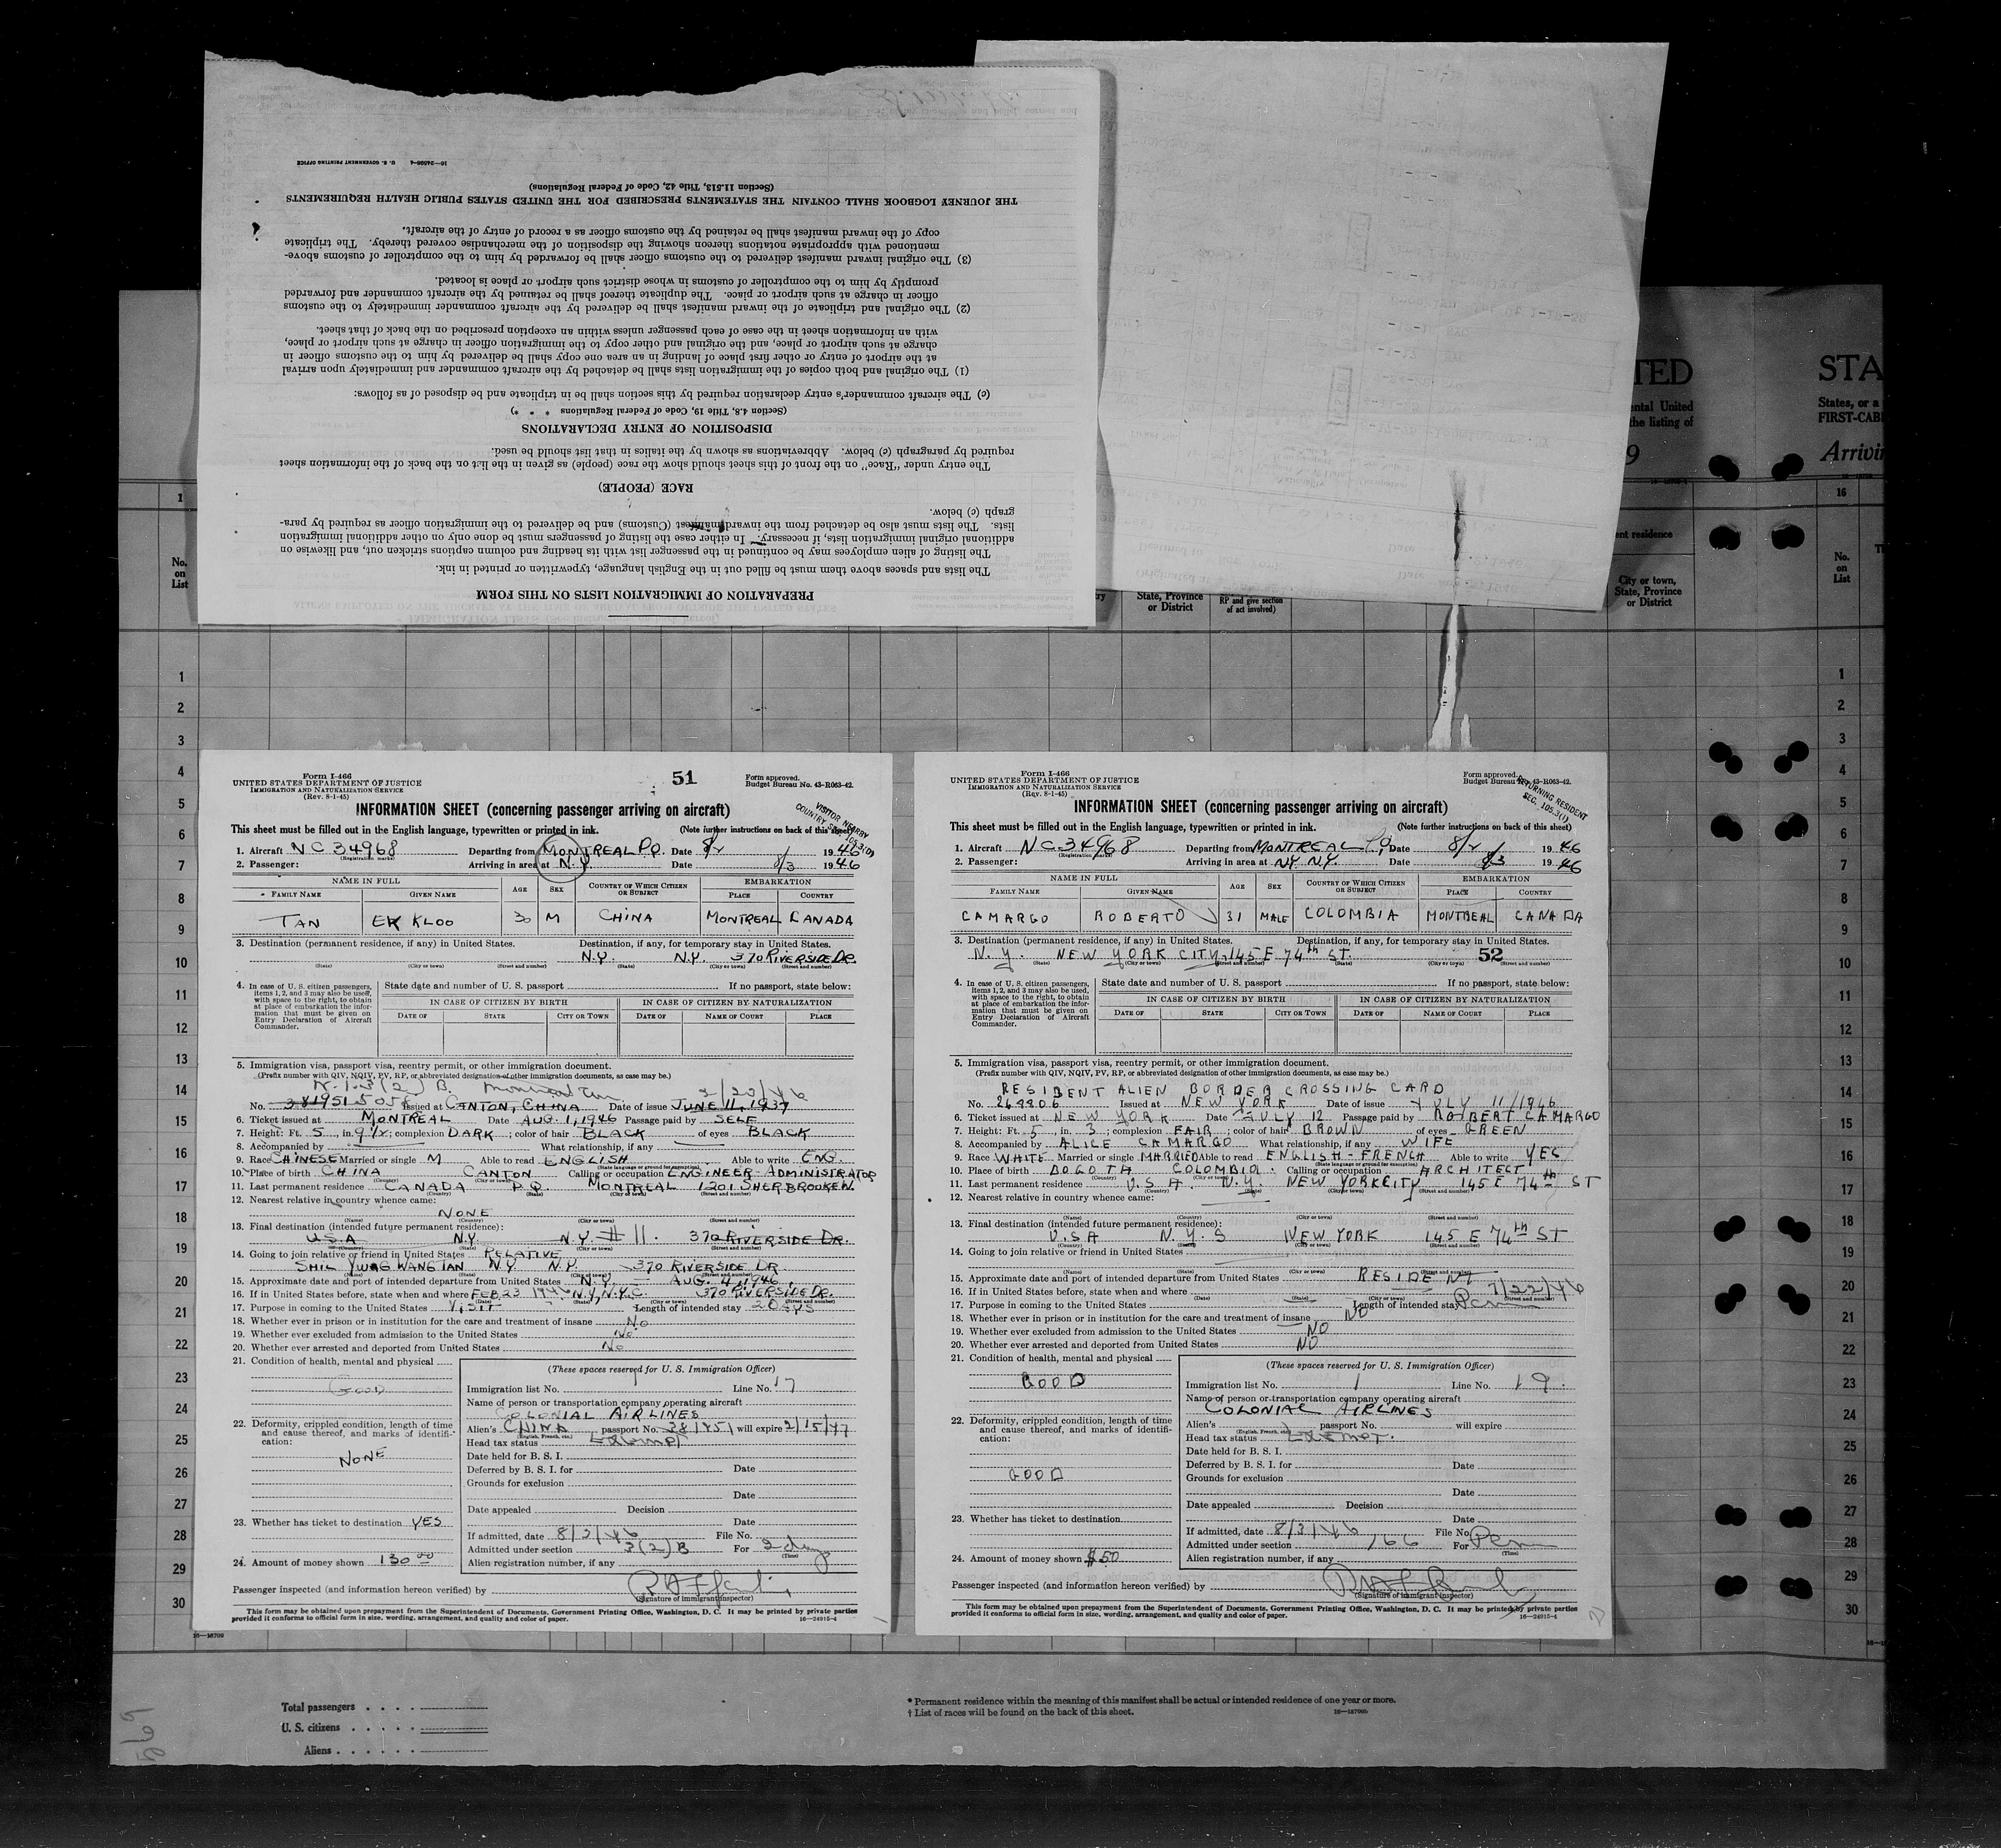 PREPARATION OF IMMIGRATION LISTS ON THIS FORM
The lists and spaces above them must be filled out in the English language, typewritten or printed in ink.
The listing of alien employees may be continued in the passenger list with its heading and column captions stricken out, and likewise on
additional original immigration lists, if necessary. In either case the listing of passengers must be done only on other additional immigration
lists. The lists must also be detached from the inward manifest (Customs) and be delivered to the immigration officer as required by para-
graph (c) below.
RACE (PEOPLE)
The entry under "Race" on the front of this sheet should show the race (people) as given in the list on the back of the information sheet
required by paragraph (c) below. Abbreviations as shown by the italics in that list should be used.
DISPOSITION OF ENTRY DECLARATIONS
(Section 4.8, Title 19, Code of Federal Regulations * * *)
(c) The aircraft commander's entry declaration required by this section shall be in triplicate and be disposed of as follows:
(1) The original and both copies of the immigration lists shall be detached by the aircraft commander and immediately upon arrival
at the airport of entry or other first place of landing in an area one copy shall be delivered by him to the customs officer in
charge at such airport or place, and the original and other copy to the immigration officer in charge at such airport or place,
with an information sheet in the case of each passenger unless within an exception prescribed on the back of that sheet.
(2) The original and triplicate of the inward manifest shall be delivered by the aircraft commander immediately to the customs
officer in charge at such airport or place. The duplicate thereof shall be retained by the aircraft commander and forwarded
promptly by him to the comptroller of customs in whose district such airport or place is located.
(3) The original inward manifest delivered to the customs officer shall be forwarded by him to the comptroller of customs above-
mentioned with appropriate notations thereon showing the disposition of the merchandise covered thereby. The triplicate
copy of the inward manifest shall be retained by the customs officer as a record of entry of the aircraft.
THE JOURNEY LOGBOOK SHALL CONTAIN THE STATEMENTS PRESCRIBED FOR THE UNITED STATES PUBLIC HEALTH REQUIREMENTS
(Section 11.513, Title 42, Code of Federal Regulations)
U. S. GOVERNMENT PRINTING OFFICE 16—24598-4
TED STA
ental United States, or a
the listing of FIRST-CAB
9 Arrivin
1 16
No. on List
State, Province or District
RP and give section of act involved)
ent residence
City or town, State, Province or District
No. on List
Form I-466
UNITED STATES DEPARTMENT OF JUSTICE
IMMIGRATION AND NATURALIZATION SERVICE
(Rev. 8-1-45)
51
Form approved.
Budget Bureau No. 43-R063-42.
INFORMATION SHEET (concerning passenger arriving on aircraft)
VISITOR NEARBY
COUNTRY SEC. 105.3(1)
This sheet must be filled out in the English language, typewritten or printed in ink. (Note further instructions on back of this sheet)
1. Aircraft NC 34968 Departing from MONTREAL P.Q. Date 8/2 1946
(Registration mark)
2. Passenger: Arriving in area at N.Y. Date 8/3 1946
NAME IN FULL AGE SEX COUNTRY OF WHICH CITIZEN OR SUBJECT EMBARKATION
FAMILY NAME GIVEN NAME PLACE COUNTRY
TAN EK KLOO 30 M CHINA MONTREAL CANADA
3. Destination (permanent residence, if any) in United States. Destination, if any, for temporary stay in United States.
N.Y. N.Y. 370 RIVERSIDE DR.
(State) (City or town) (Street and number) (State) (City or town) (Street and number)
4. In case of U. S. citizen passengers, items 1, 2, and 3 may also be used, with space to the right, to obtain at place of embarkation the information that must be given on Entry Declaration of Aircraft Commander.
State date and number of U. S. passport If no passport, state below:
IN CASE OF CITIZEN BY BIRTH IN CASE OF CITIZEN BY NATURALIZATION
DATE OF STATE CITY OR TOWN DATE OF NAME OF COURT PLACE
5. Immigration visa, passport visa, reentry permit, or other immigration document.
(Prefix number with QIV, NQIV, PV, RP, or abbreviated designation of other immigration documents, as case may be.)
3(2) B. Montreal Can 2/23/46
No. 381951 Issued at CANTON, CHINA Date of issue JUNE 11, 1937
6. Ticket issued at MONTREAL Date AUG. 1, 1946 Passage paid by SELF
7. Height: Ft. 5, in. 9 1/2; complexion DARK; color of hair BLACK of eyes BLACK
8. Accompanied by What relationship, if any
9. Race CHINESE Married or single M Able to read ENGLISH Able to write ENG.
(State language or ground for exemption)
10. Place of birth CHINA CANTON Calling or occupation ENGINEER-ADMINISTRATOR
(Country) (City or town)
11. Last permanent residence CANADA P.Q. MONTREAL 1201 SHERBROOKE W.
(Country) (State) (City or town) (Street and number)
12. Nearest relative in country whence came:
NONE
(Name) (Country) (City or town) (Street and number)
13. Final destination (intended future permanent residence):
U.S.A N.Y. N.Y. # 11. 370 RIVERSIDE DR.
(Country) (State) (City or town) (Street and number)
14. Going to join relative or friend in United States RELATIVE
SHIL YWAG WANG TAN N.Y. N.Y. 370 RIVERSIDE DR
(Name) (State) (City or town) (Street and number)
15. Approximate date and port of intended departure from United States N.Y. — AUG. 4, 1946
16. If in United States before, state when and where FEB 23 1946 N.Y., N.Y.C. 370 RIVERSIDE DR.
(Date) (State) (City or town) (Street and number)
17. Purpose in coming to the United States VISIT Length of intended stay 2 DAYS
18. Whether ever in prison or in institution for the care and treatment of insane No
19. Whether ever excluded from admission to the United States No
20. Whether ever arrested and deported from United States No
21. Condition of health, mental and physical
GOOD
22. Deformity, crippled condition, length of time and cause thereof, and marks of identification:
NONE
23. Whether has ticket to destination YES
24. Amount of money shown 130.00
(These spaces reserved for U. S. Immigration Officer)
Immigration list No. 1 Line No. 17
Name of person or transportation company operating aircraft
COLONIAL AIRLINES
Alien's CHINA passport No. 381951 will expire 2/15/47
(English, French, etc.)
Head tax status Exempt
Date held for B. S. I.
Deferred by B. S. I. for Date
Grounds for exclusion
Date
Date appealed Decision
Date
If admitted, date 8/3/46 File No.
Admitted under section 3(2)B For 2 days
(Time)
Alien registration number, if any
Passenger inspected (and information hereon verified) by
(Signature of immigrant inspector)
This form may be obtained upon prepayment from the Superintendent of Documents, Government Printing Office, Washington, D. C. It may be printed by private parties
provided it conforms to official form in size, wording, arrangement, and quality and color of paper. 16—24915-4
Form I-466
UNITED STATES DEPARTMENT OF JUSTICE
IMMIGRATION AND NATURALIZATION SERVICE
(Rev. 8-1-45)
Form approved.
Budget Bureau No. 43-R063-42.
INFORMATION SHEET (concerning passenger arriving on aircraft)
RETURNING RESIDENT
SEC. 105.3(1)
This sheet must be filled out in the English language, typewritten or printed in ink. (Note further instructions on back of this sheet)
1. Aircraft NC 34968 Departing from MONTREAL P.Q. Date 8/2 1946
(Registration mark)
2. Passenger: Arriving in area at NY. NY. Date 8/3 1946
NAME IN FULL AGE SEX COUNTRY OF WHICH CITIZEN OR SUBJECT EMBARKATION
FAMILY NAME GIVEN NAME PLACE COUNTRY
CAMARGO ROBERTO 31 MALE COLOMBIA MONTREAL CANADA
3. Destination (permanent residence, if any) in United States. Destination, if any, for temporary stay in United States.
N.Y. NEW YORK CITY, 145 E 74th ST. 52
(State) (City or town) (Street and number) (State) (City or town) (Street and number)
4. In case of U. S. citizen passengers, items 1, 2, and 3 may also be used, with space to the right, to obtain at place of embarkation the information that must be given on Entry Declaration of Aircraft Commander.
State date and number of U. S. passport If no passport, state below:
IN CASE OF CITIZEN BY BIRTH IN CASE OF CITIZEN BY NATURALIZATION
DATE OF STATE CITY OR TOWN DATE OF NAME OF COURT PLACE
5. Immigration visa, passport visa, reentry permit, or other immigration document.
(Prefix number with QIV, NQIV, PV, RP, or abbreviated designation of other immigration documents, as case may be.)
RESIDENT ALIEN BORDER CROSSING CARD
No. 269906 Issued at NEW YORK Date of issue JULY 11/1946
6. Ticket issued at NEW YORK Date JULY 12 Passage paid by ROBERT CAMARGO
7. Height: Ft. 5, in. 3; complexion FAIR; color of hair BROWN of eyes GREEN
8. Accompanied by ALICE CAMARGO What relationship, if any WIFE
9. Race WHITE Married or single MARRIED Able to read ENGLISH-FRENCH Able to write YES
(State language or ground for exemption)
10. Place of birth BOGOTA COLOMBIA. Calling or occupation ARCHITECT
(Country) (City or town)
11. Last permanent residence U.S.A. N.Y. NEW YORK CITY 145 E 74th ST
(Country) (State) (City or town) (Street and number)
12. Nearest relative in country whence came:
(Name) (Country) (City or town) (Street and number)
13. Final destination (intended future permanent residence):
U.S.A N.Y.S NEW YORK 145 E 74th ST
(Country) (State) (City or town) (Street and number)
14. Going to join relative or friend in United States
(Name) (State) (City or town) (Street and number)
15. Approximate date and port of intended departure from United States RESIDENT
16. If in United States before, state when and where 7/22/46
(Date) (State) (City or town) (Street and number)
17. Purpose in coming to the United States Length of intended stay Perm
18. Whether ever in prison or in institution for the care and treatment of insane NO
19. Whether ever excluded from admission to the United States NO
20. Whether ever arrested and deported from United States NO
21. Condition of health, mental and physical
GOOD
22. Deformity, crippled condition, length of time and cause thereof, and marks of identification:
GOOD
23. Whether has ticket to destination
24. Amount of money shown $50
(These spaces reserved for U. S. Immigration Officer)
Immigration list No. 1 Line No. 19
Name of person or transportation company operating aircraft
COLONIAL AIRLINES
Alien's passport No. will expire
(English, French, etc.)
Head tax status Exempt.
Date held for B. S. I.
Deferred by B. S. I. for Date
Grounds for exclusion
Date
Date appealed Decision
Date
If admitted, date 8/3/46 File No.
Admitted under section 166 For Perm
(Time)
Alien registration number, if any
Passenger inspected (and information hereon verified) by
(Signature of immigrant inspector)
This form may be obtained upon prepayment from the Superintendent of Documents, Government Printing Office, Washington, D. C. It may be printed by private parties
provided it conforms to official form in size, wording, arrangement, and quality and color of paper. 16—24915-4
1
2
3
4
5
6
7
8
9
10
11
12
13
14
15
16
17
18
19
20
21
22
23
24
25
26
27
28
29
30
16—18709
Total passengers
U. S. citizens
Aliens
* Permanent residence within the meaning of this manifest shall be actual or intended residence of one year or more.
† List of races will be found on the back of this sheet. 16—18709b